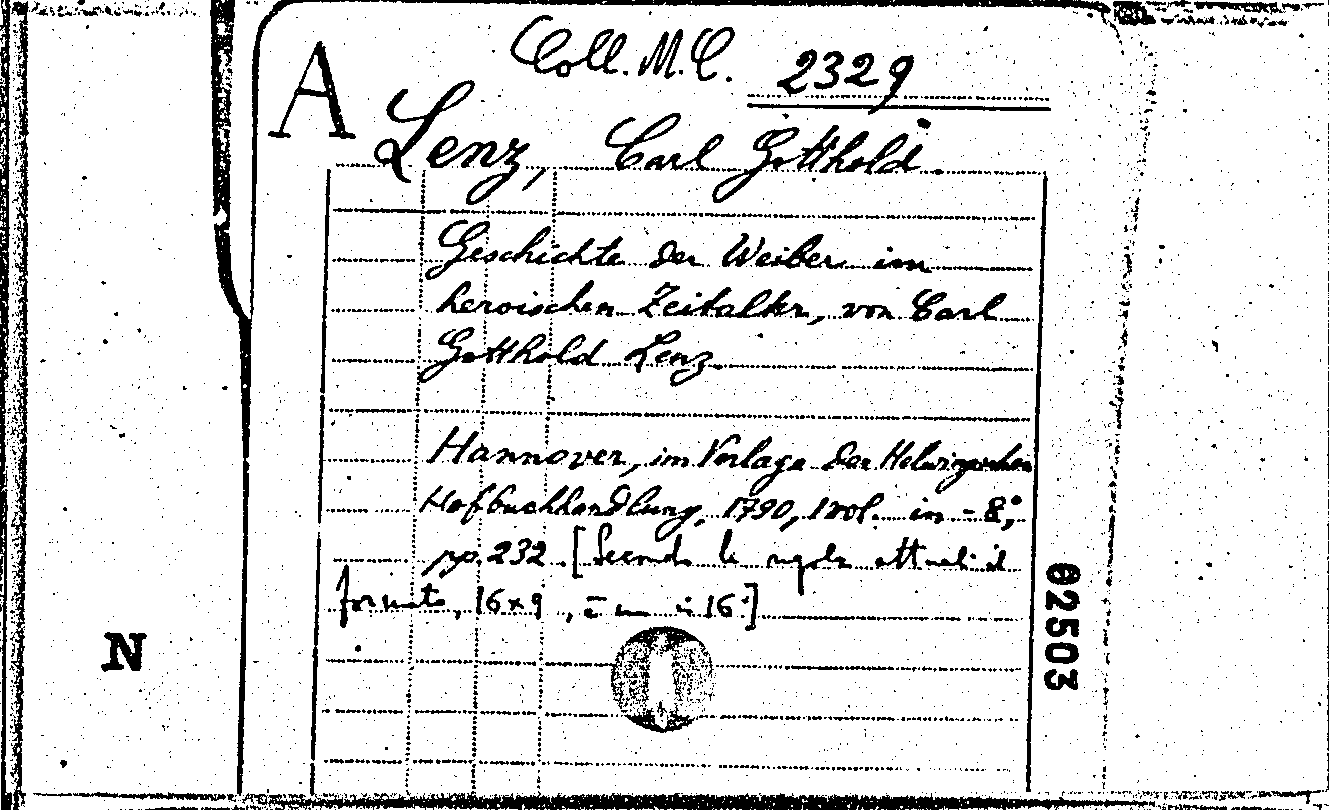 Coll. M. C. 2329
A
Lenz, Carl Gotthold.
Geschichte der Weiber im
heroischen Zeitalter, von Carl
Gotthold Lenz.
Hannover, im Verlage der Helwingischen
Hofbuchhandlung, 1790, 1 vol. in - 8°,
pp. 232. [Secondo le regole attuali il
formato, 16x9, è un in 16°]
02503
N